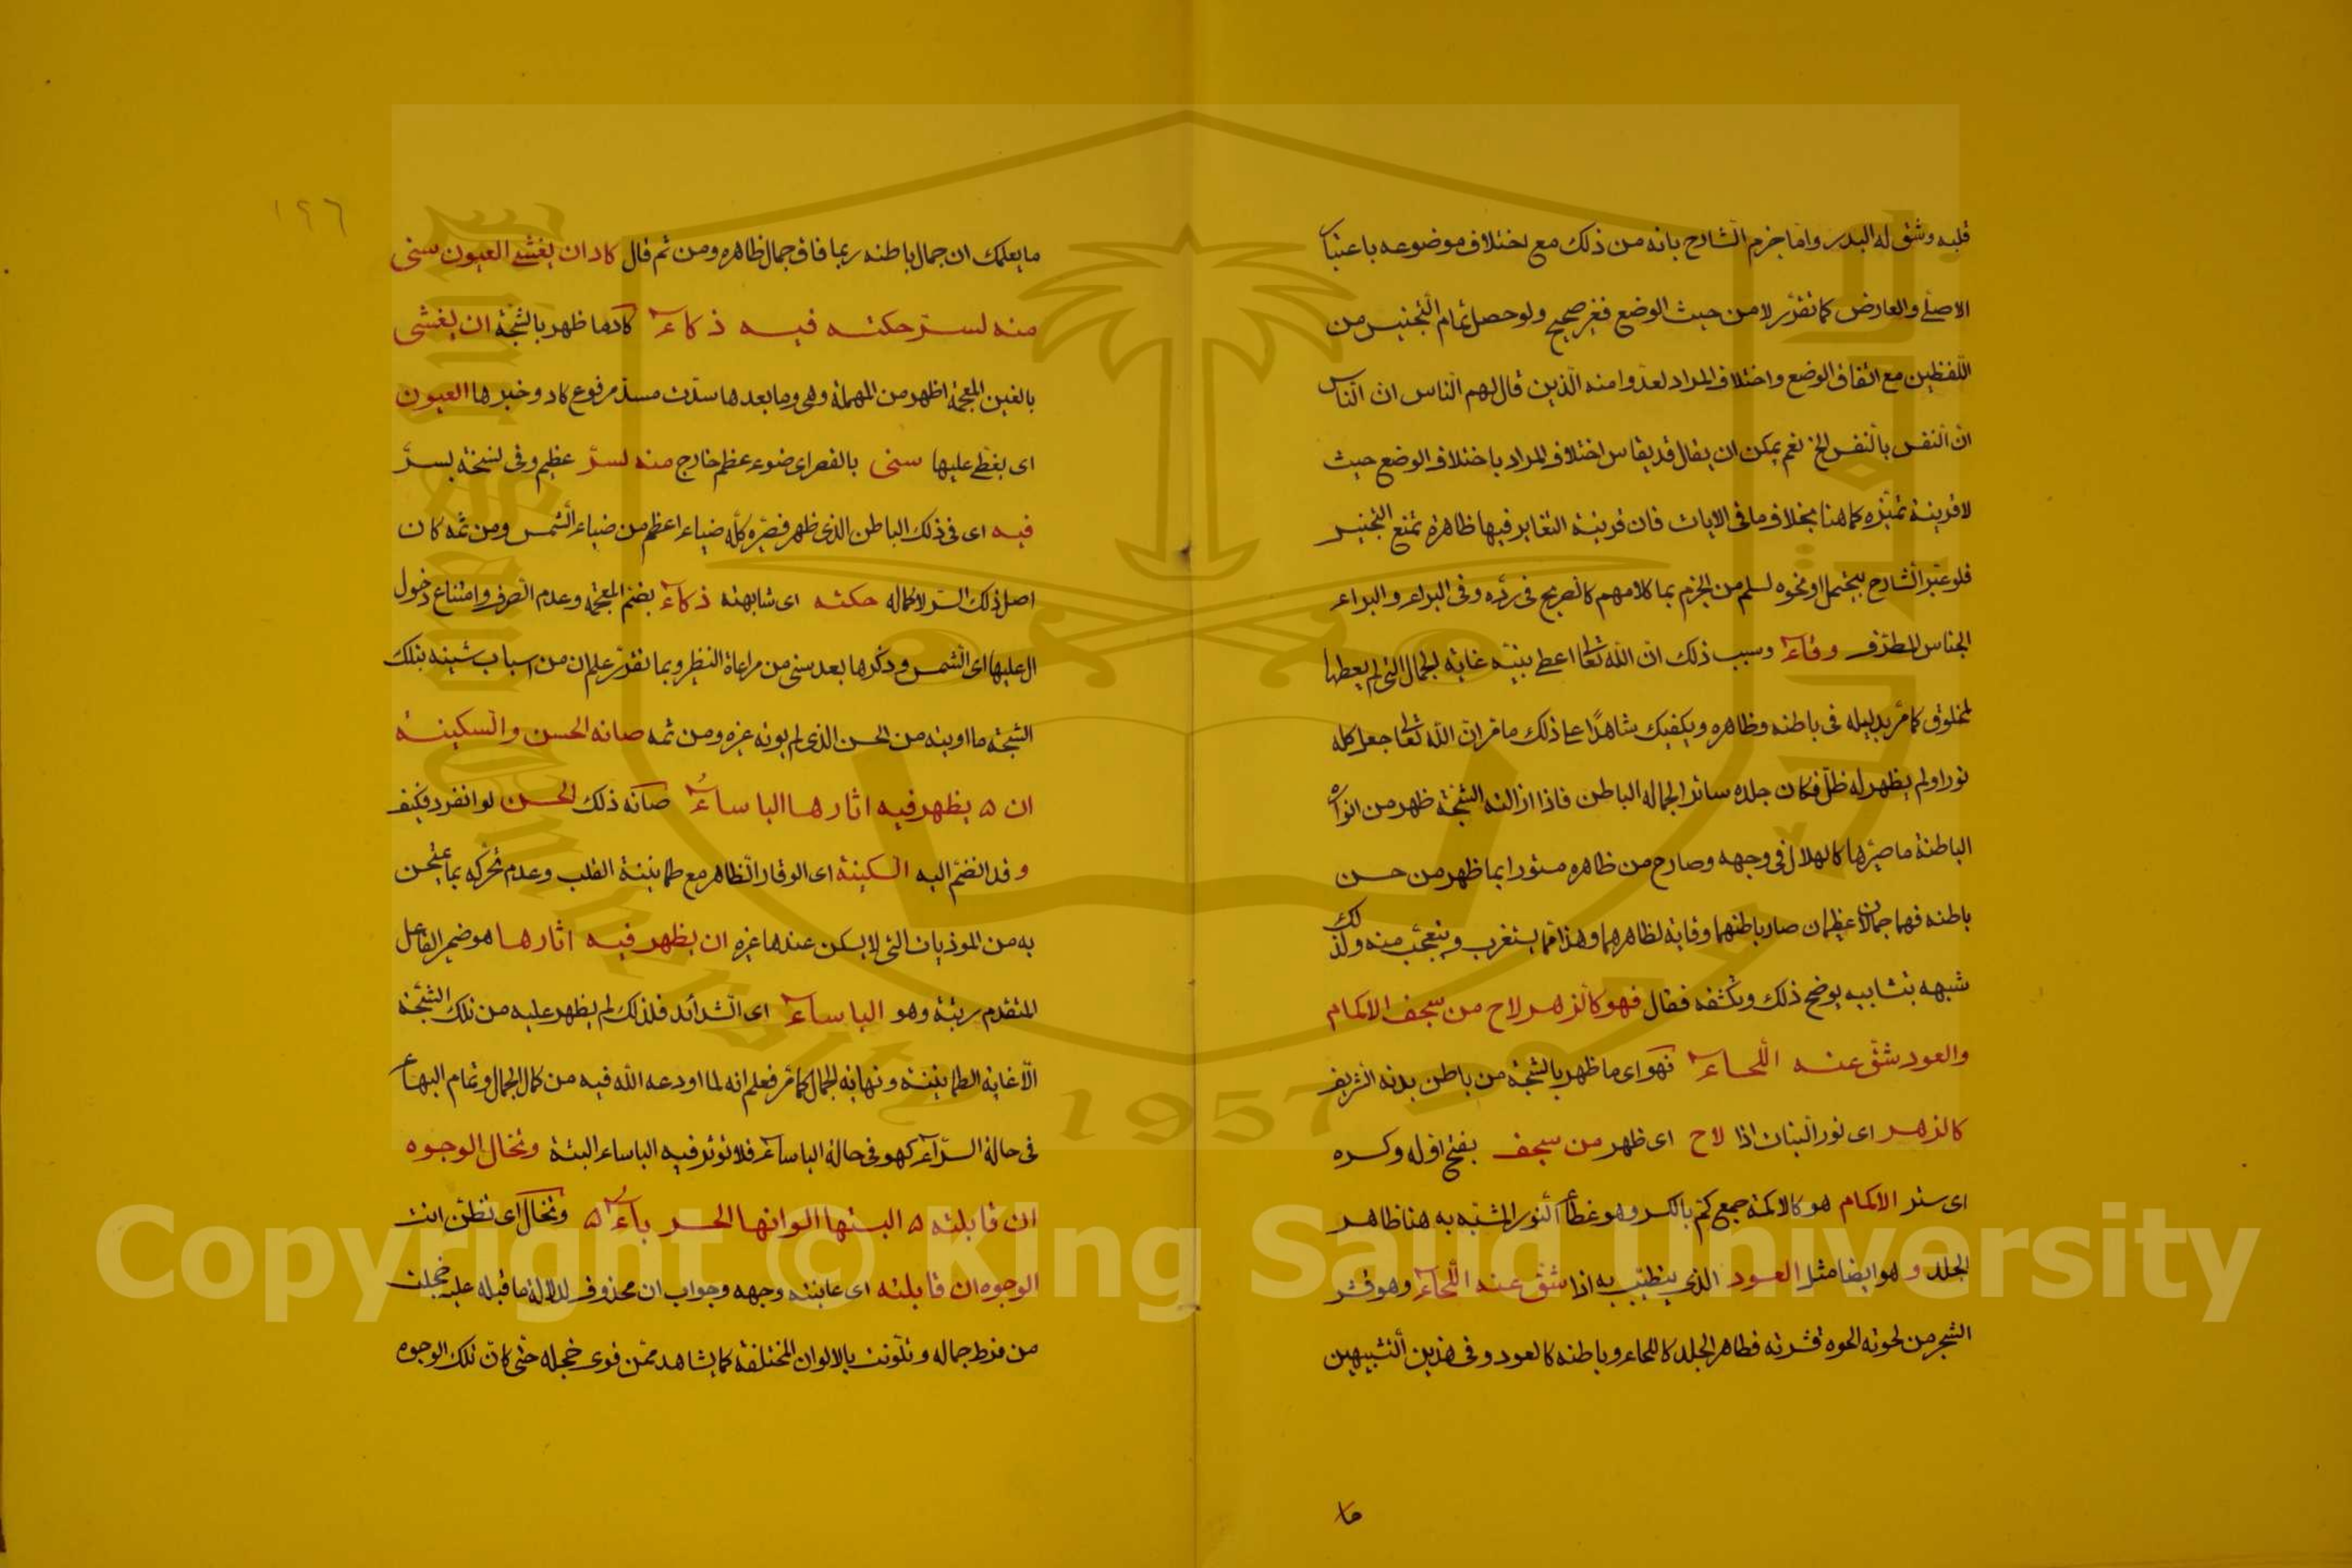 قلبه وشق له البدر واما جزم الشارح بانه من ذلك مع اختلاف موضوعه باعتبار
الاصلي والعارض كما تقرر لا من حيث الوضع فغير صحيح ولو حصل تمام التجنيس من
اللفظين مع اتفاق الوضع واختلاف المراد لعدوا منه الذين قال لهم الناس ان الناس
ان النفس بالنفس الخ نعم يمكن ان يقال قد يقاس اختلاف المراد باختلاف الوضع حيث
لا قرينة تميزه كما هنا بخلاف ما في الايات فان قرينة التغاير فيها ظاهرة تمنع التجنيس
فلو عبر الشارح بيحتمل او نحوه لسلم من الجزم بما كلامهم كالصريح في رده وفي البراء والبراء
الجناس المطرف وقاء وسبب ذلك ان الله تعا اعطى نبيه غاية الجمال التي لم يعطها
لمخلوق كما مر بدليله في باطنه وظاهره ويكفيك شاهدا على ذلك ما مر ان الله تعا جعل كله
نورا ولم يظهر له ظل فكان جلده ساتر الجمال الباطن فاذا ازالته الشجة ظهر من انوار
الباطنة ما صيرها كالهلال في وجهه وصار من ظاهره مستورا بما ظهر من حسن
باطنه فهما جمالان عظيمان صار باطنهما وقاية لظاهرهما وهذا مما يستغرب ويتعجب منه ولذلك
شبهه بتشابيه يوضح ذلك ويكشفه فقال فهو كالزهر لاح من سجف الاكمام
والعود شق عنه اللحاء فهو اى ما ظهر بالشجة من باطن بدنه الشريف
كالزهر اى نور النبات اذا لاح اى ظهر من سجف بفتح اوله وكسره
اى ستر الاكمام هو كالاكمة جمع كم بالكسر وهو غطاء النور المشبه به هنا ظاهر
الجلد و هو ايضا مثل العود الذي يتطيب به اذا شق عنه اللحاء وهو قشر
الشجر من لحوته الحوه قشرته فظاهر الجلد كاللحاء وباطنه كالعود وفي هذين التشبيهين
ما
١٩٦
ما يعلمك ان جمال باطنه ربما فاق جمال ظاهره ومن ثم قال كاد ان يغشى العيون سنى
منه لسر حكته فيه ذكاء كاد ما ظهر بالشجة ان يغشى
بالغين المعجمة اظهر من المهملة وهي وما بعدها سدت مسد مرفوع كاد وخبرها العيون
اى يغطى عليها سنى بالقصر اى ضوء عظم خارج منه لسر عظيم وفى نسخة بسر
فيه اى في ذلك الباطن الذي ظهر فصيره كله ضياء اعظم من ضياء الشمس ومن ثمه كان
اصل ذلك السر لا كماله حكته اى شابهته ذكاء بضم المعجمة وعدم الصرف وامتناع دخول
ال عليها اى الشمس وذكرها بعد سنى من مراعاة النظير وبما تقرر علم ان من اسباب شينه بتلك
الشجة ما اوتيه من الحسن الذي لم يوته غيره ومن ثمه صانه الحسن والسكينة
ان ٥ يظهر فيه اثارها الباساء صانه ذلك الحسن لو انفرد فكيف
و قد انضم اليه السكينة اى الوقار الظاهر مع طمانينة القلب وعدم تحركه بما يمتحن
به من الموذيات التي لا يسكن عندها غيره ان يظهر فيه اثارها هو ضمير الفاعل
المتقدم رتبة وهو الباساء اى الشدائد فلذلك لم يظهر عليه من تلك الشجة
الا غاية الطمانينة ونهاية الجمال كما مر فعلم انه لما اودعه الله فيه من كمال الجمال وتمام البهاء
في حالة السراء كهو في حالة الباساء فلا توثر فيه الباساء البتة وتخال الوجوه
ان قابلته ٥ البستها الوانها الحرباء ٥ وتخال اى تظن انت
الوجوه ان قابلته اى عاينته وجهه وجواب ان محذوف لدلالة ما قبله عليه خجلت
من فرط جماله وتلونت بالالوان المختلفة كما يشاهد ممن قوى خجله حتى كان تلك الوجوه